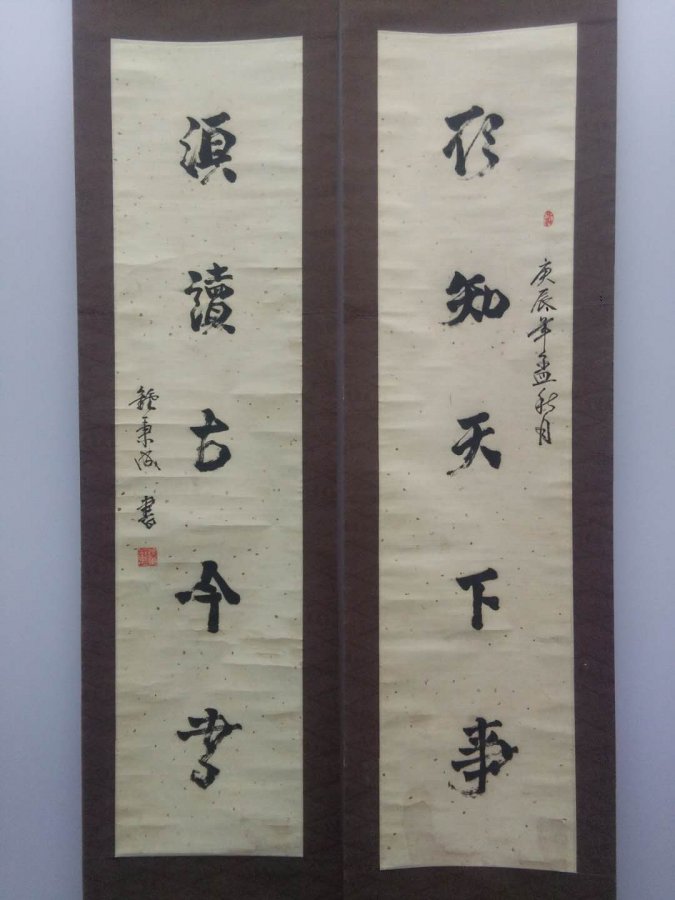 欲知天下事
庚辰年孟秋月
須讀古今書
鍾秉 書